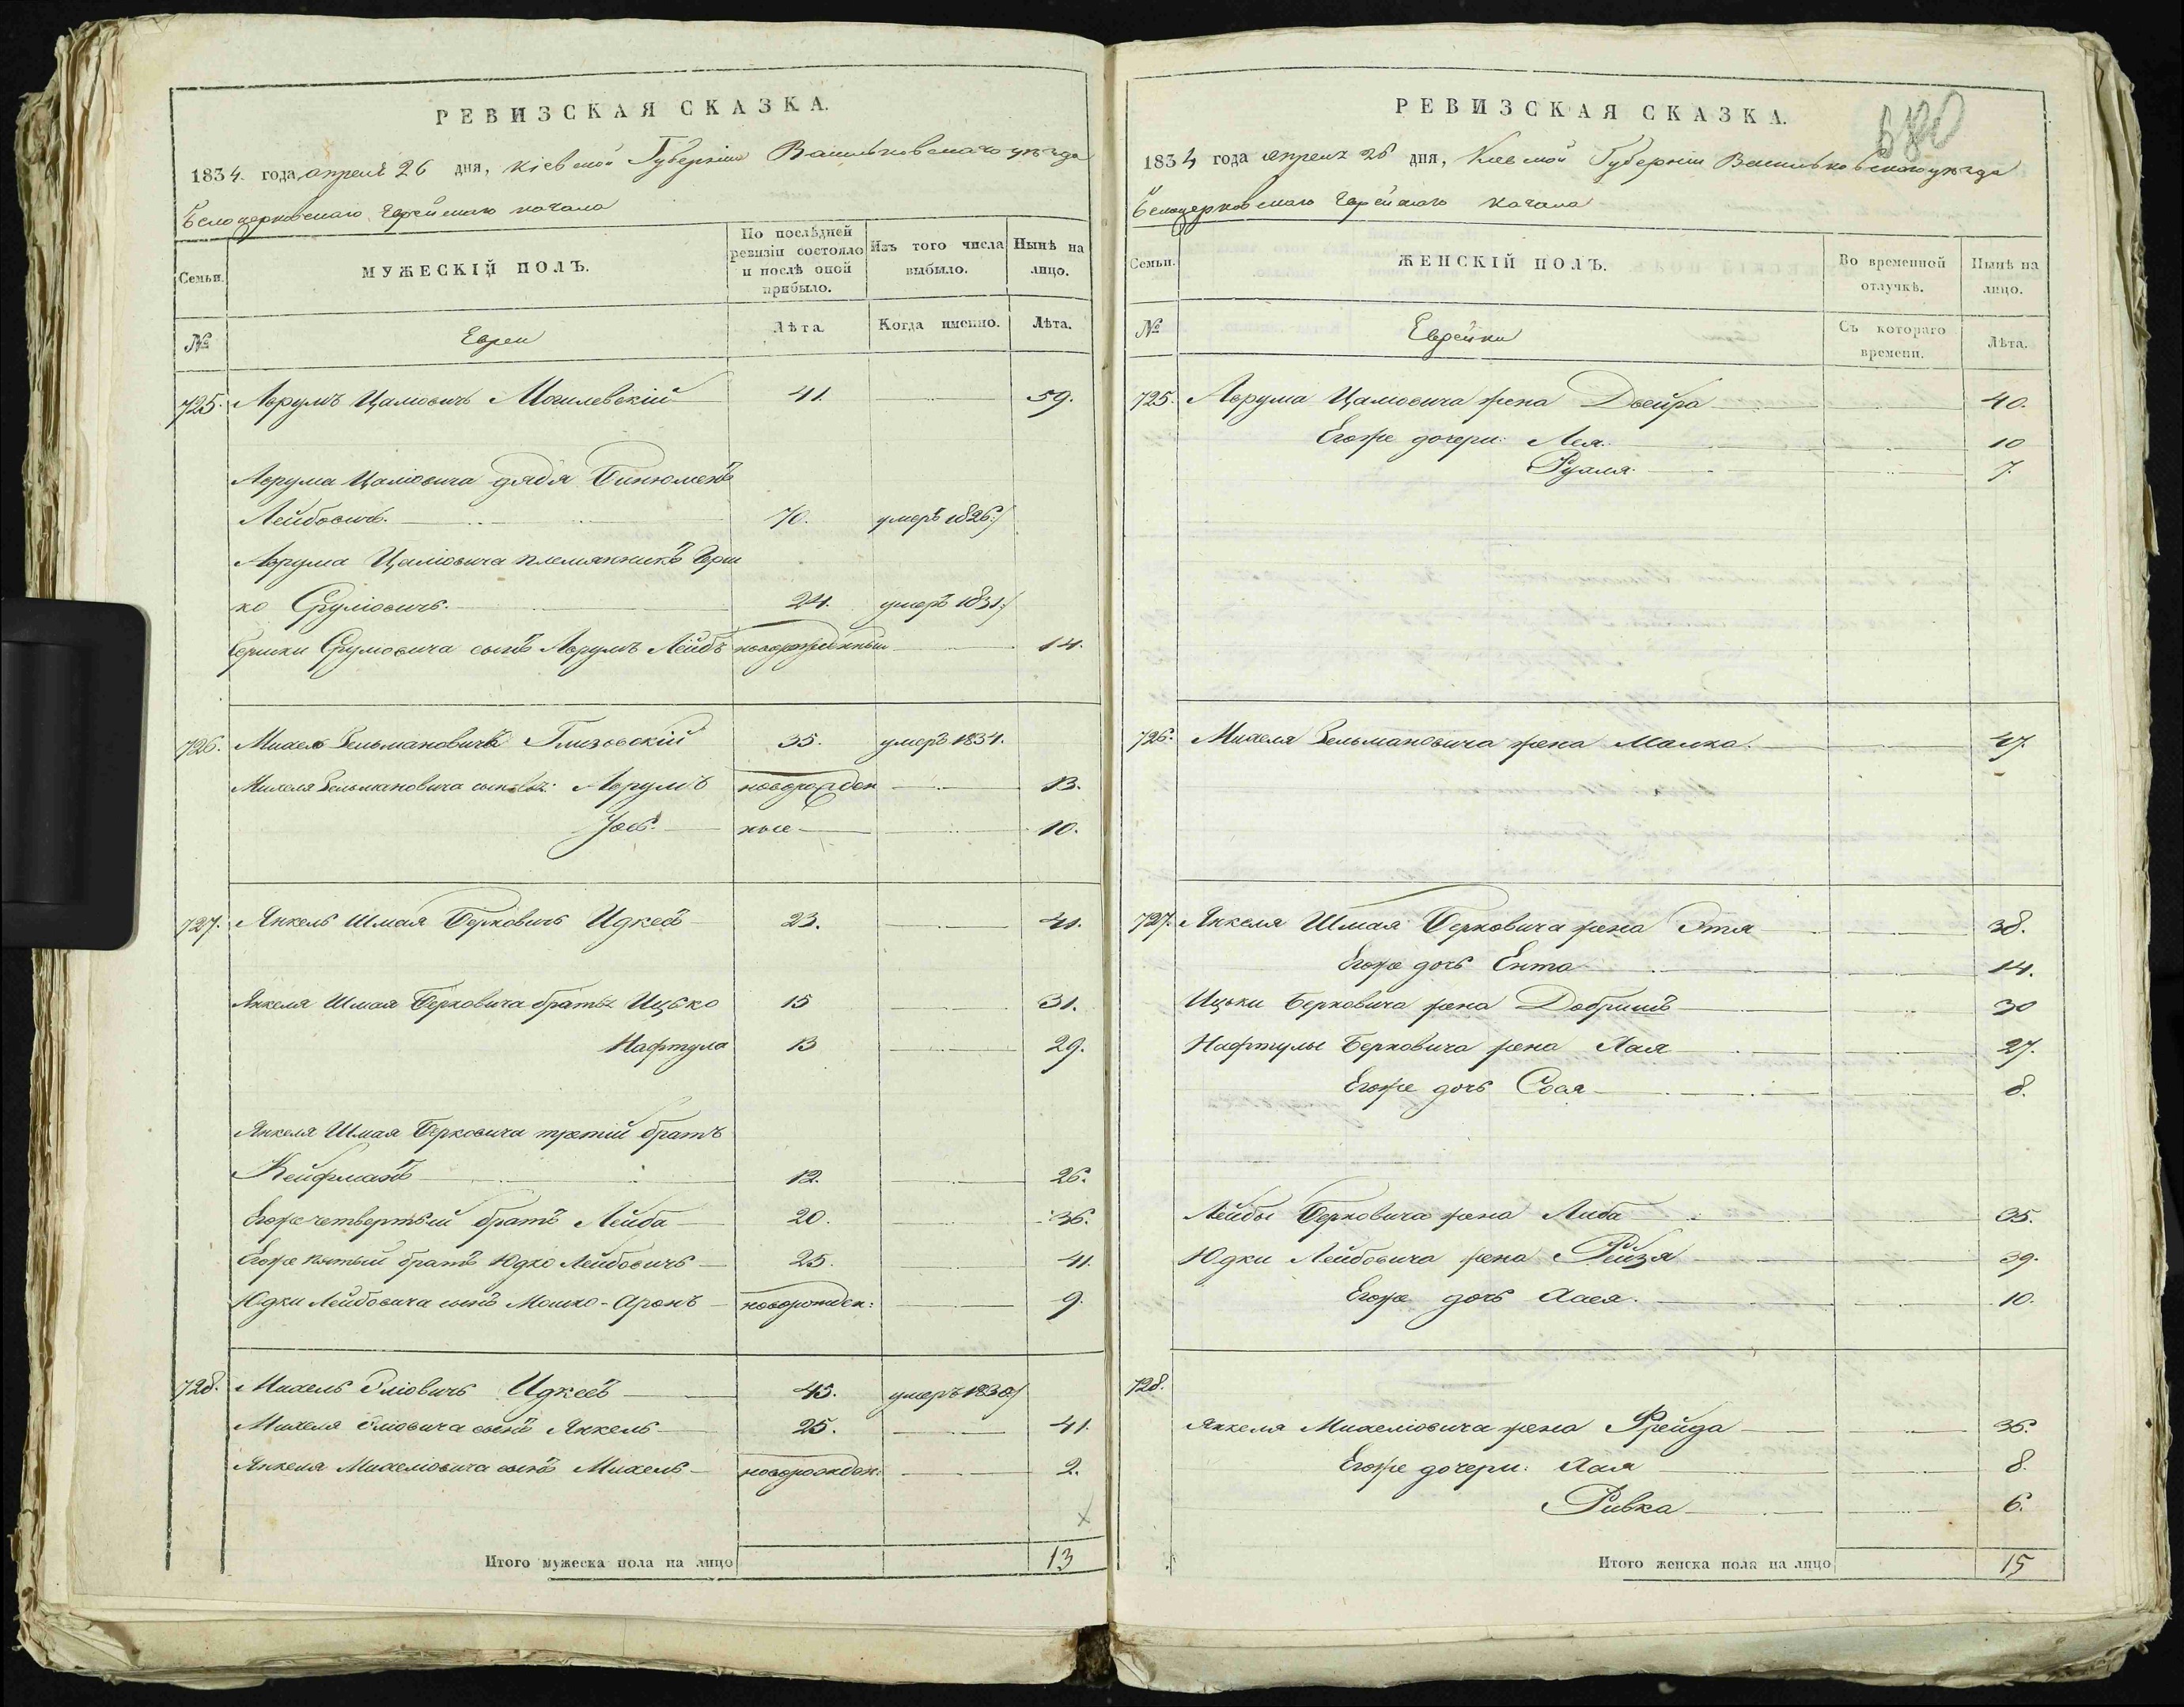 РЕВИЗСКАЯ СКАЗКА.
1834. года апреля 26 дня, Кіевской Губерніи Васильковскаго уезда
Белоцерковскаго Еврейскаго кагала
Семьи. МУЖЕСКІЙ ПОЛЪ. По послѣдней ревизіи состояло и послѣ оной прибыло. Изъ того числа выбыло. Нынѣ на лицо.
№ Евреи Лѣта Когда именно. Лѣта.
725. Аврумъ Цаліовичь Могилевскій 41. 59.
Аврума Цаліовича дядя Бинюменъ
Лейбовичь. 70. умеръ 1826:/
Аврума Цаліовича племянникъ Герш
ко Сруліовичь. 24. умеръ 1831:/
Гершки Сруліовича сынъ Аврумъ Лейбъ новорожденный 14.
726. Михель Зельмановичь Глизовскій 35. умеръ 1831.
Михеля Зельмановича сыновья: Аврумъ новорожден 13.
Іосъ. ные 10.
727. Янкель Шмая Берковичь Идкесъ 23. 41.
Янкеля Шмая Берковича братья Ицько 15 31.
Нафтула 13 29.
Янкеля Шмая Берковича третій братъ
Кейфманъ 12. 26.
Егоже четвертый братъ Лейба 20. 36.
Егоже пятый братъ Юдко Лейбовичь 25. 41.
Юдки Лейбовича сынъ Мошко-Аронъ новорожден: 9.
728. Михель Эліовичь Идкесъ 45. умеръ 1830:/
Михеля Эліовича сынъ Янкель 25. 41.
Янкеля Михеліовича сынъ Михель новорожден: 2.
Итого мужеска пола на лицо 13
680
РЕВИЗСКАЯ СКАЗКА.
1834 года апреля 26 дня, Киевской Губерніи Васильковскаго уезда
Белоцерковскаго Еврейскаго кагала
Семьи. ЖЕНСКІЙ ПОЛЪ. Во временной отлучкѣ. Нынѣ на лицо.
№ Еврейки Съ котораго времени. Лѣта.
725. Аврума Цаліовича жена Двейра 40.
Егоже дочери: Лея. 10
Рухля. 7.
726. Михеля Зельмановича жена Малка. 47.
727. Янкеля Шмая Берковича жена Этя 38.
Егоже дочь Ента 14.
Ицьки Берковича жена Добришъ 30
Нафтулы Берковича жена Хая 27.
Егоже дочь Сося 8.
Лейбы Берковича жена Либа 35.
Юдки Лейбовича жена Рейзя 39.
Егоже дочь Хася. 10.
728.
Янкеля Михеліовича жена Фрейда 36.
Егоже дочери: Хая 8.
Ривка 6.
Итого женска пола на лицо 15